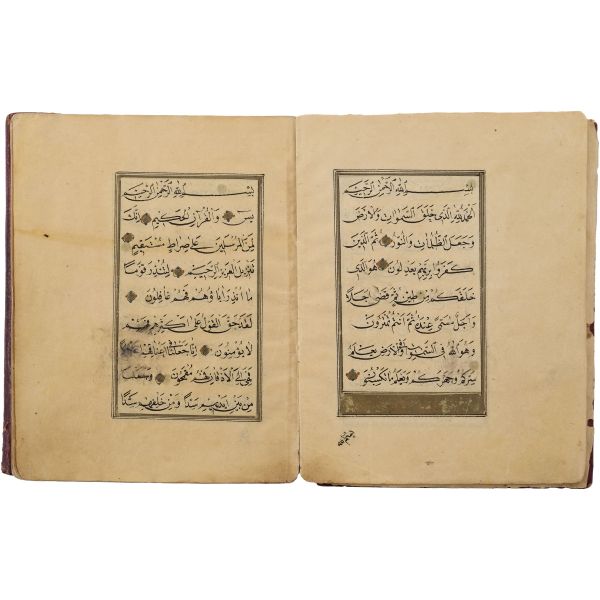 بسم الله الرحمن الرحيم
الحمد لله الذى خلق السموات والارض
وجعل الظلمات والنور ثم الذين
كفروا بربهم يعدلون هو الذى
خلقكم من طين ثم قضى اجلا
واجل مسمى عنده ثم انتم تمترون
وهو الله فى السموات وفى الارض يعلم
سركم وجهركم ويعلم ما تكسبون
بسم الله الرحمن الرحيم
يس والقرآن الحكيم انك
لمن المرسلين على صراط مستقيم
تنزيل العزيز الرحيم لتنذر قوما
ما انذر اباؤهم فهم غافلون
لقد حق القول على اكثرهم فهم
لا يؤمنون انا جعلنا فى اعناقهم اغلالا
فهى الى الاذقان فهم مقمحون وجعلنا
من بين ايديهم سدا ومن خلفهم سدا